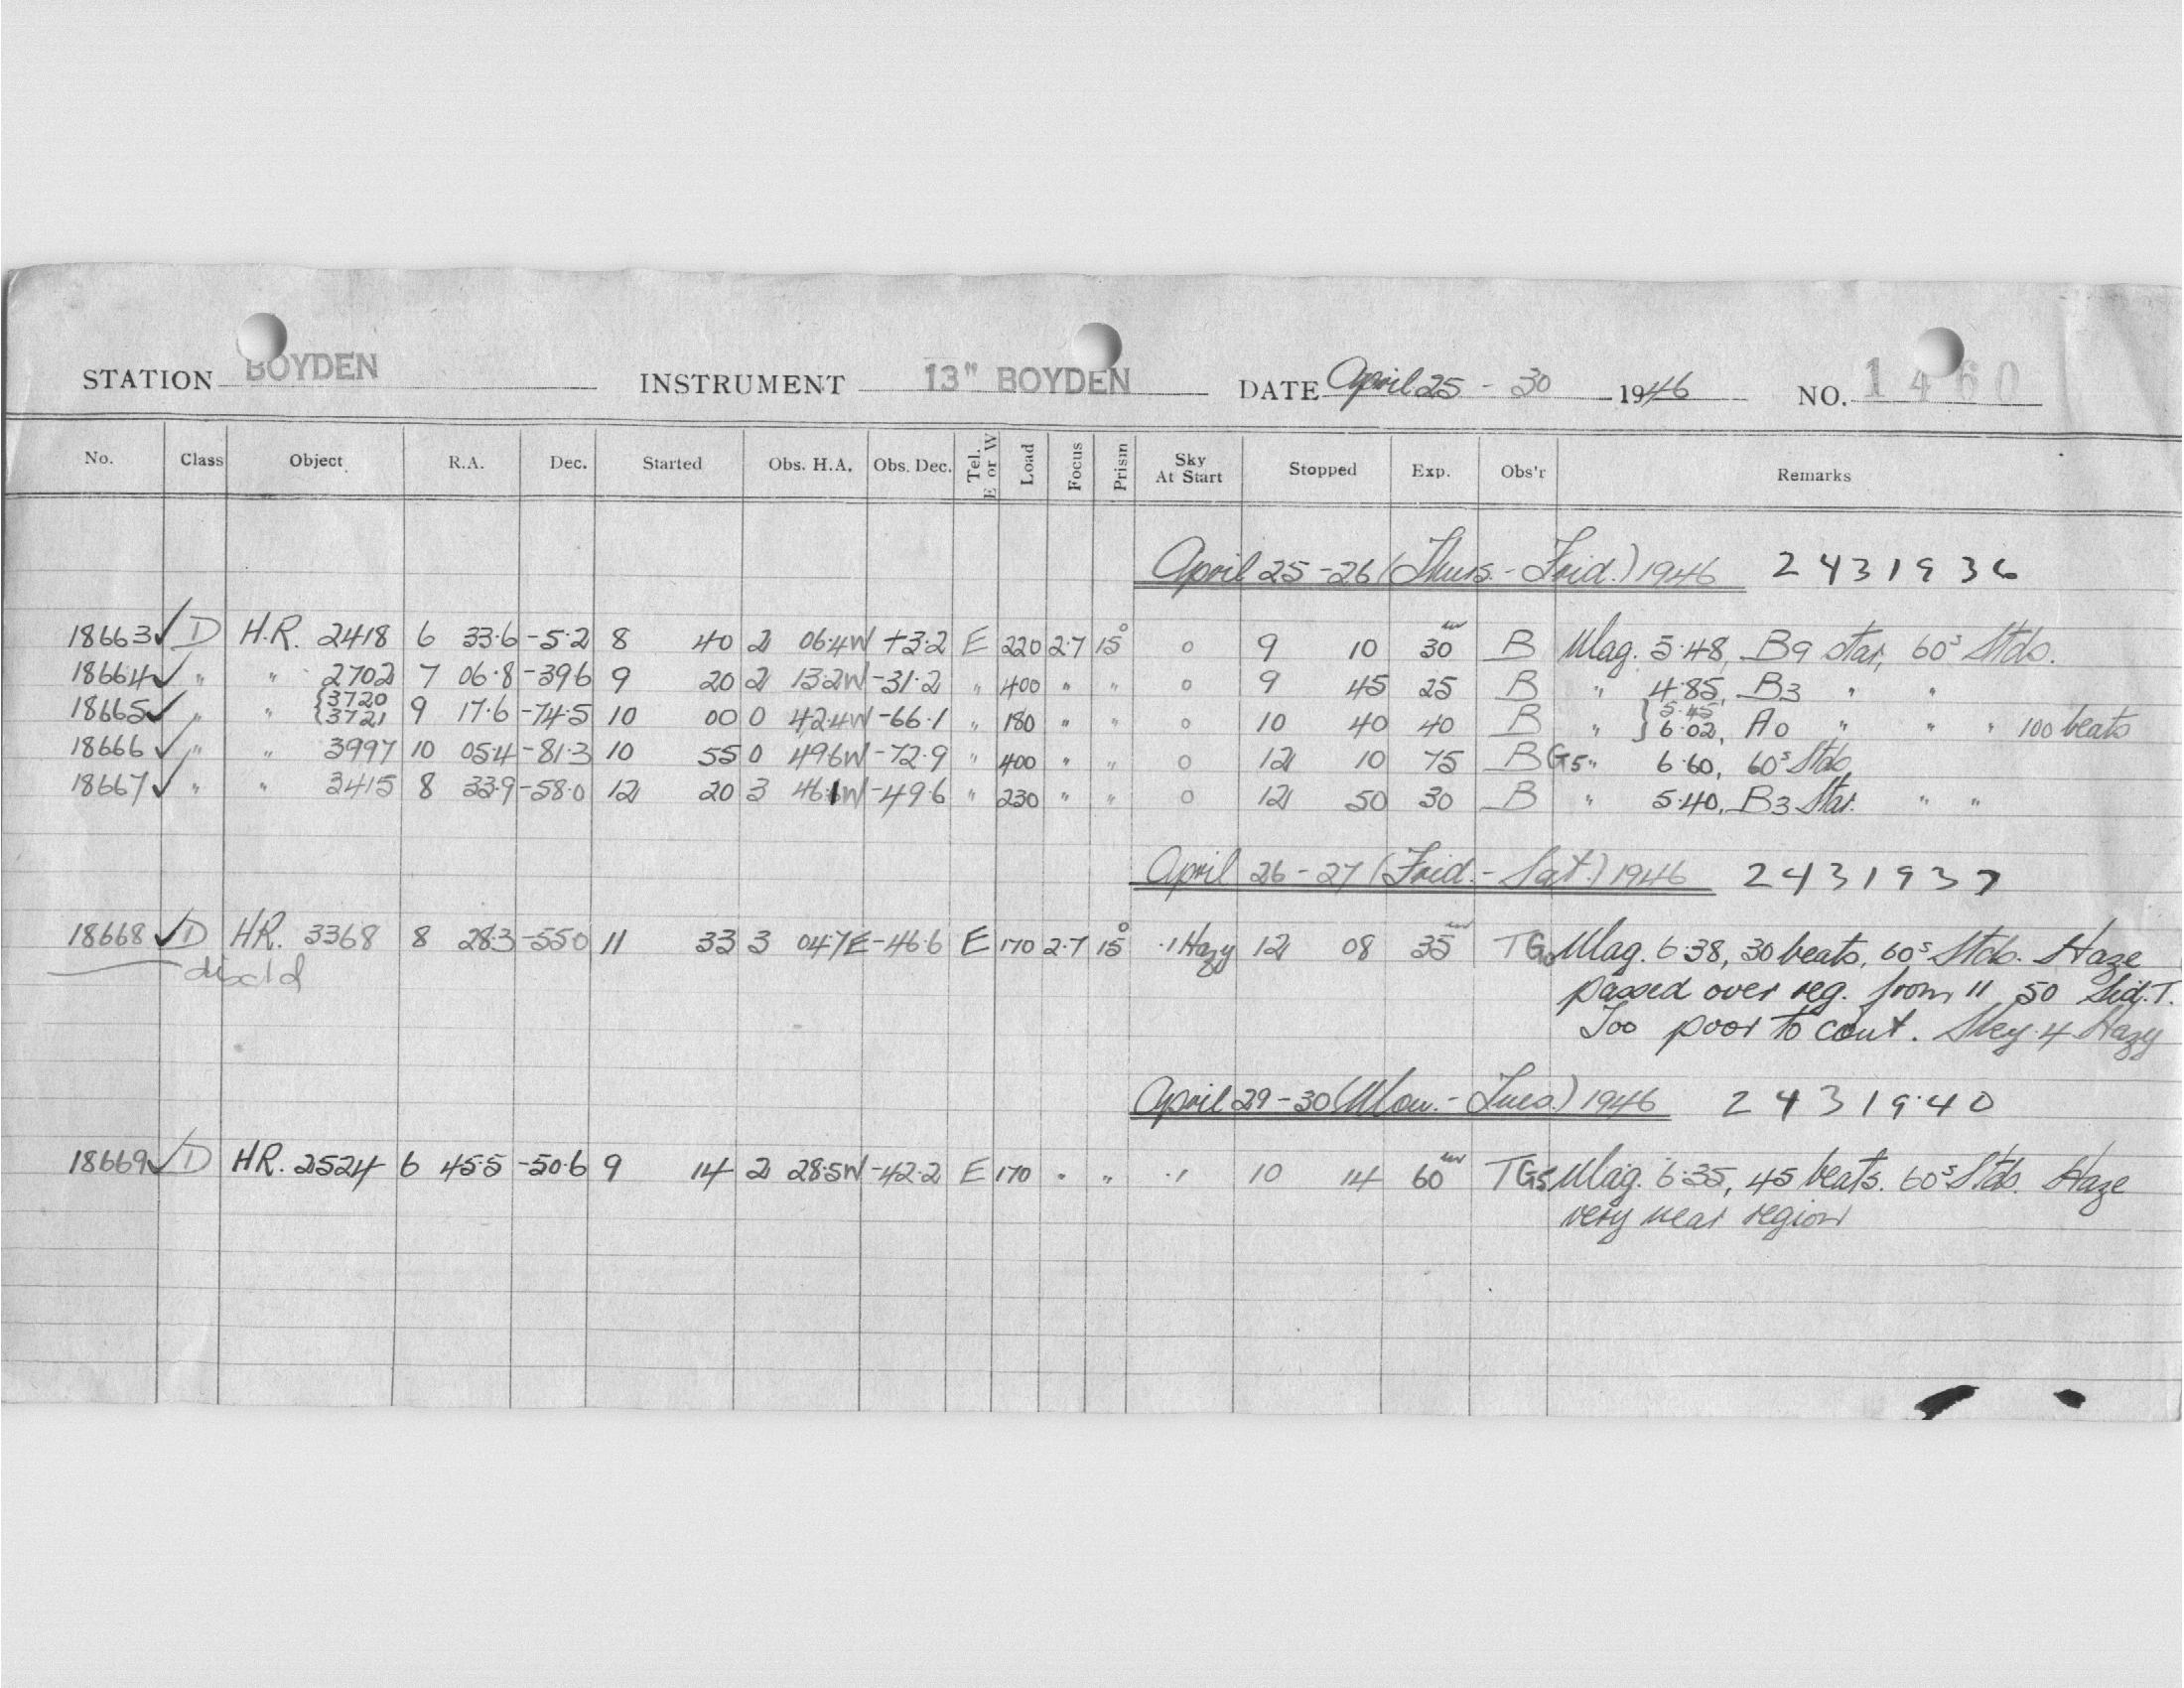 STATION BOYDEN INSTRUMENT 13" BOYDEN DATE April 25 - 30 1946 NO. 1460
No. Class Object R.A. Dec. Started Obs. H.A. Obs. Dec. Tel. E or W Load Focus Prism Sky At Start Stopped Exp. Obs'r Remarks
April 25-26 (Thurs.-Frid.) 1946 2431936
18663 ✓ D H.R. 2418 6 33.6 -5.2 8 40 2 06.4W +3.2 E 220 2.7 15° 0 9 10 30 B Mag. 5.48, B9 star, 60s Stds.
18664 ✓ " " 2702 7 06.8 -39.6 9 20 2 13.2W -31.2 " 400 " " 0 9 45 25 B " 4.85, B3 " "
18665 ✓ " " {3720 3721 9 17.6 -74.5 10 00 0 42.4W -66.1 " 180 " " 0 10 40 40 B " }5.45 6.02, A0 " " " 100 beats
18666 ✓ " " 3997 10 05.4 -81.3 10 55 0 49.6W -72.9 " 400 " " 0 12 10 75 B G5 " 6.60, 60s Stds
18667 ✓ " " 3415 8 33.9 -58.0 12 20 3 46.1W -49.6 " 230 " " 0 12 50 30 B " 5.40, B3 Star. " "
April 26-27 (Frid.-Sat.) 1946 2431937
18668 ✓ D HR. 3368 8 28.3 -55.0 11 33 3 04.7E -46.6 E 170 2.7 15° .1 Hazy 12 08 35 T G0 Mag. 6.38, 30 beats, 60s Stds. Haze
disc'd passed over reg. from 11 50 Sid. T.
Too poor to cont. Sky .4 Hazy
April 29-30 (Mon.-Tues.) 1946 2431940
18669 ✓ D HR. 2524 6 45.5 -50.6 9 14 2 28.5W -42.2 E 170 " " .1 10 14 60 T G5 Mag. 6.35, 45 beats. 60s Stds. Haze
very near region